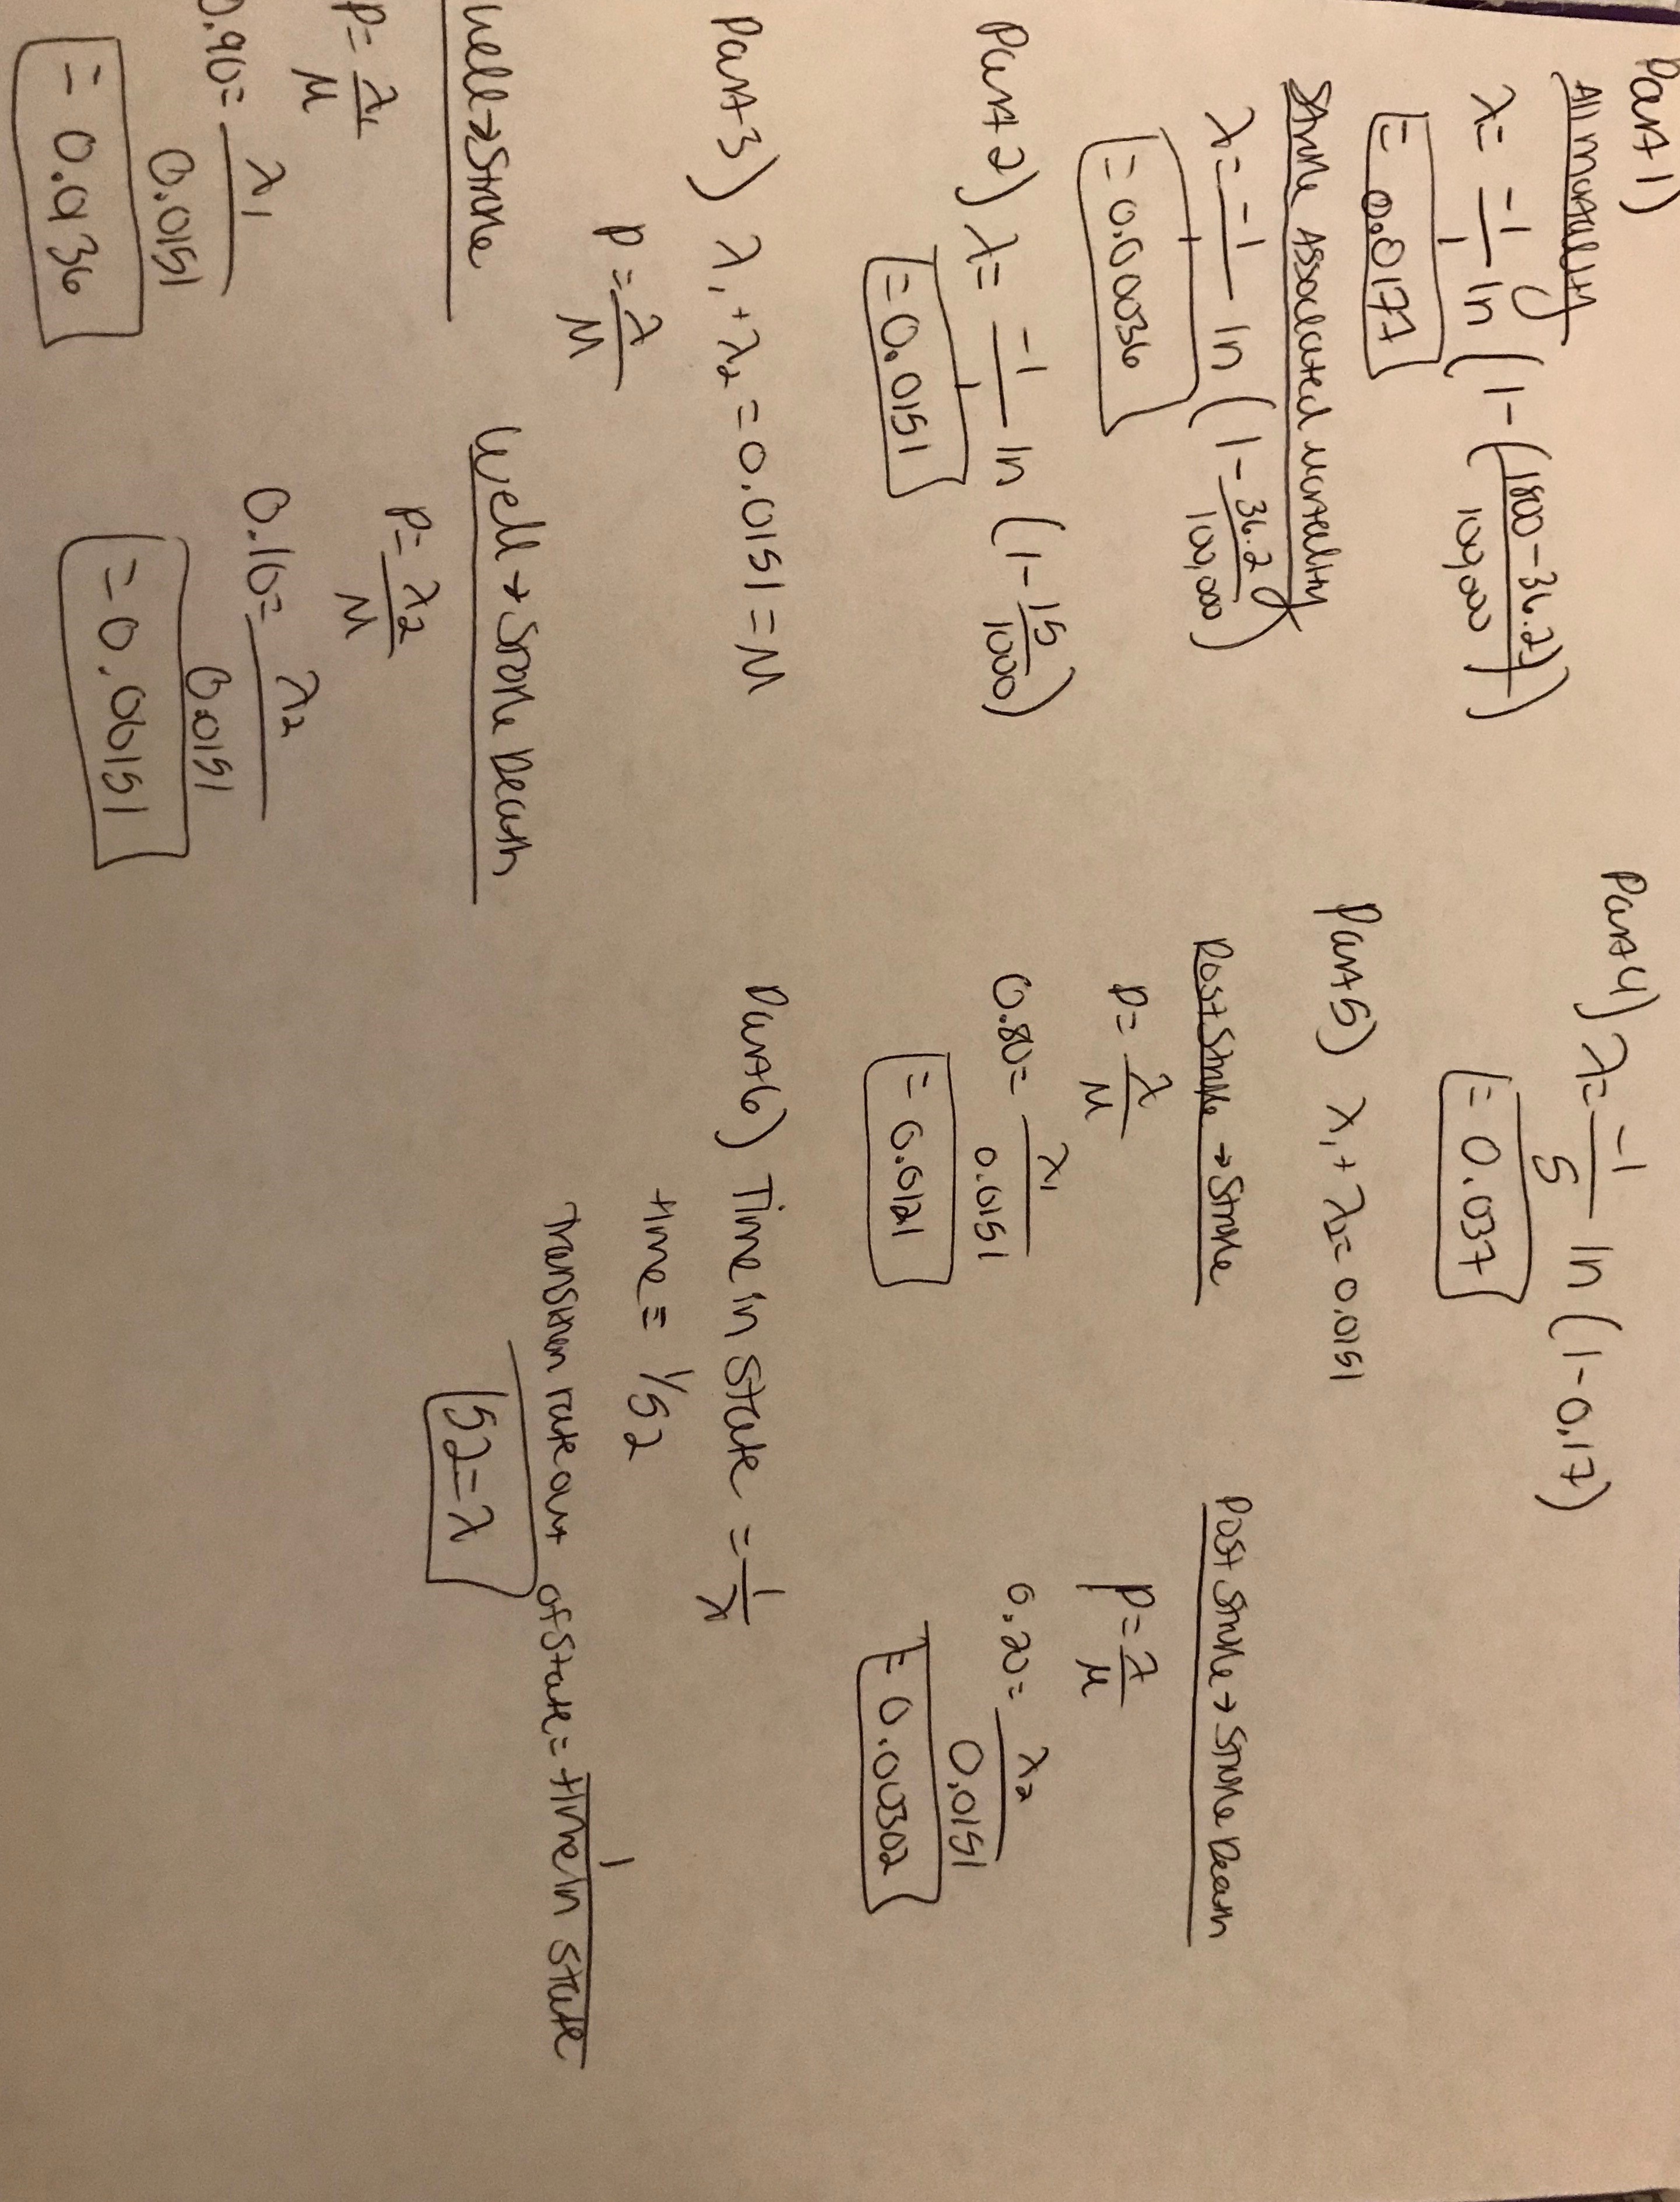 Part 1)
All mortality
λ = -1/1 ln (1-(1800-36.2/100,000))
= 0.0177
Stroke Associated mortality
λ = -1/1 ln (1- 36.2/100,000)
= 0.00036
Part 2) λ = -1/1 ln (1- 15/1000)
= 0.0151
Part 3) λ₁ + λ₂ = 0.0151 = M
P = λ/M
Well → Stroke
P = λ₁/M
0.90 = λ₁/0.0151
= 0.0136
Well → Stroke Death
P = λ₂/M
0.10 = λ₂/0.0151
= 0.00151
Part 4) λ = -1/5 ln (1-0.17)
= 0.037
Part 5) λ₁ + λ₂ = 0.0151
Post Stroke → Stroke
P = λ/M
0.80 = λ₁/0.0151
= 0.0121
Post Stroke → Stroke Death
P = λ/M
0.20 = λ₂/0.0151
= 0.00302
Part 6) Time in state = 1/λ
time = 1/52
Transition rate out of state = 1/time in state
52 = λ